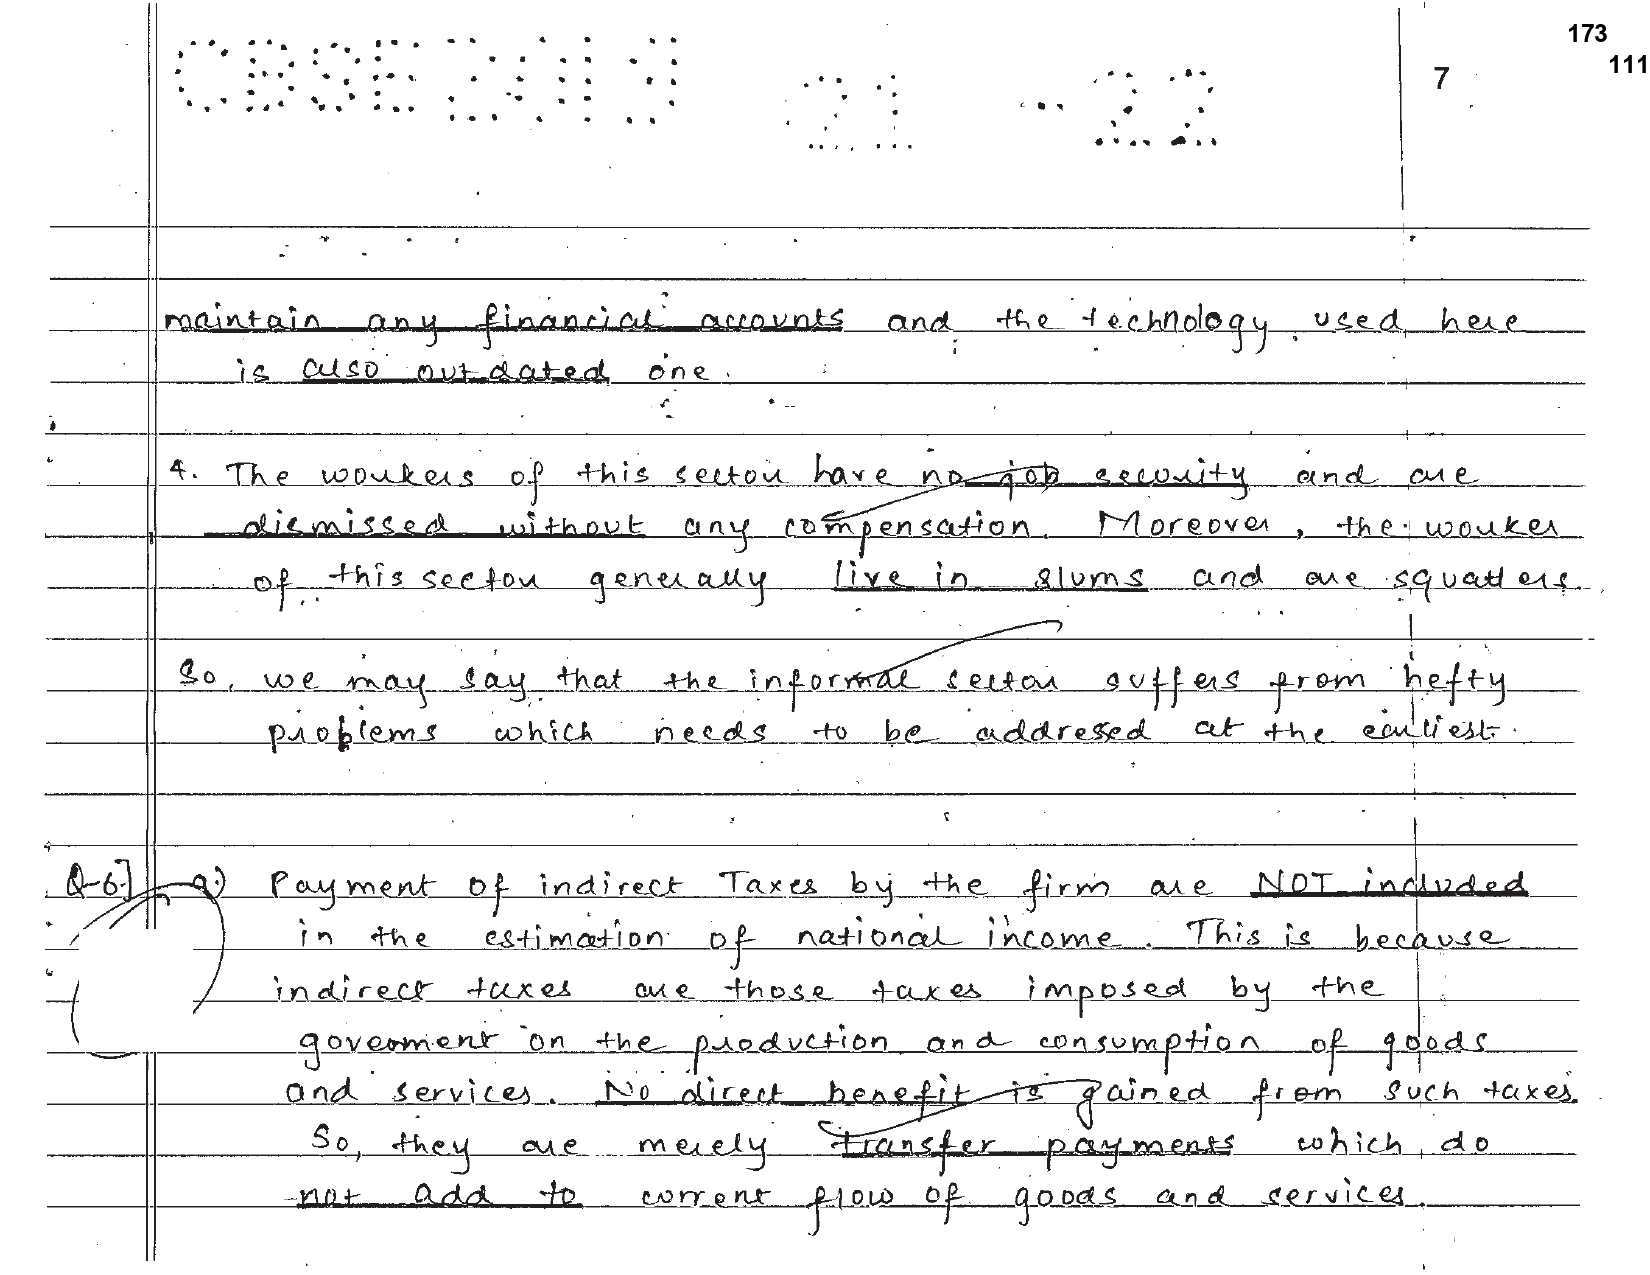 173
111
7
CBSE 2019 21 - 22
maintain any financial accounts and the technology used here
is also outdated one.
4. The workers of this sector have no job security and are
dismissed without any compensation. Moreover, the worker
of this sector generally live in slums and are squatters.
So, we may say that the informal sector suffers from hefty
problems which needs to be addresed at the earliest.
Q-6.] a.) Payment of indirect Taxes by the firm are NOT included
in the estimation of national income. This is because
indirect taxes are those taxes imposed by the
government on the production and consumption of goods
and services. No direct benefit is gained from such taxes.
So, they are merely transfer payments which do
not add to current flow of goods and services.